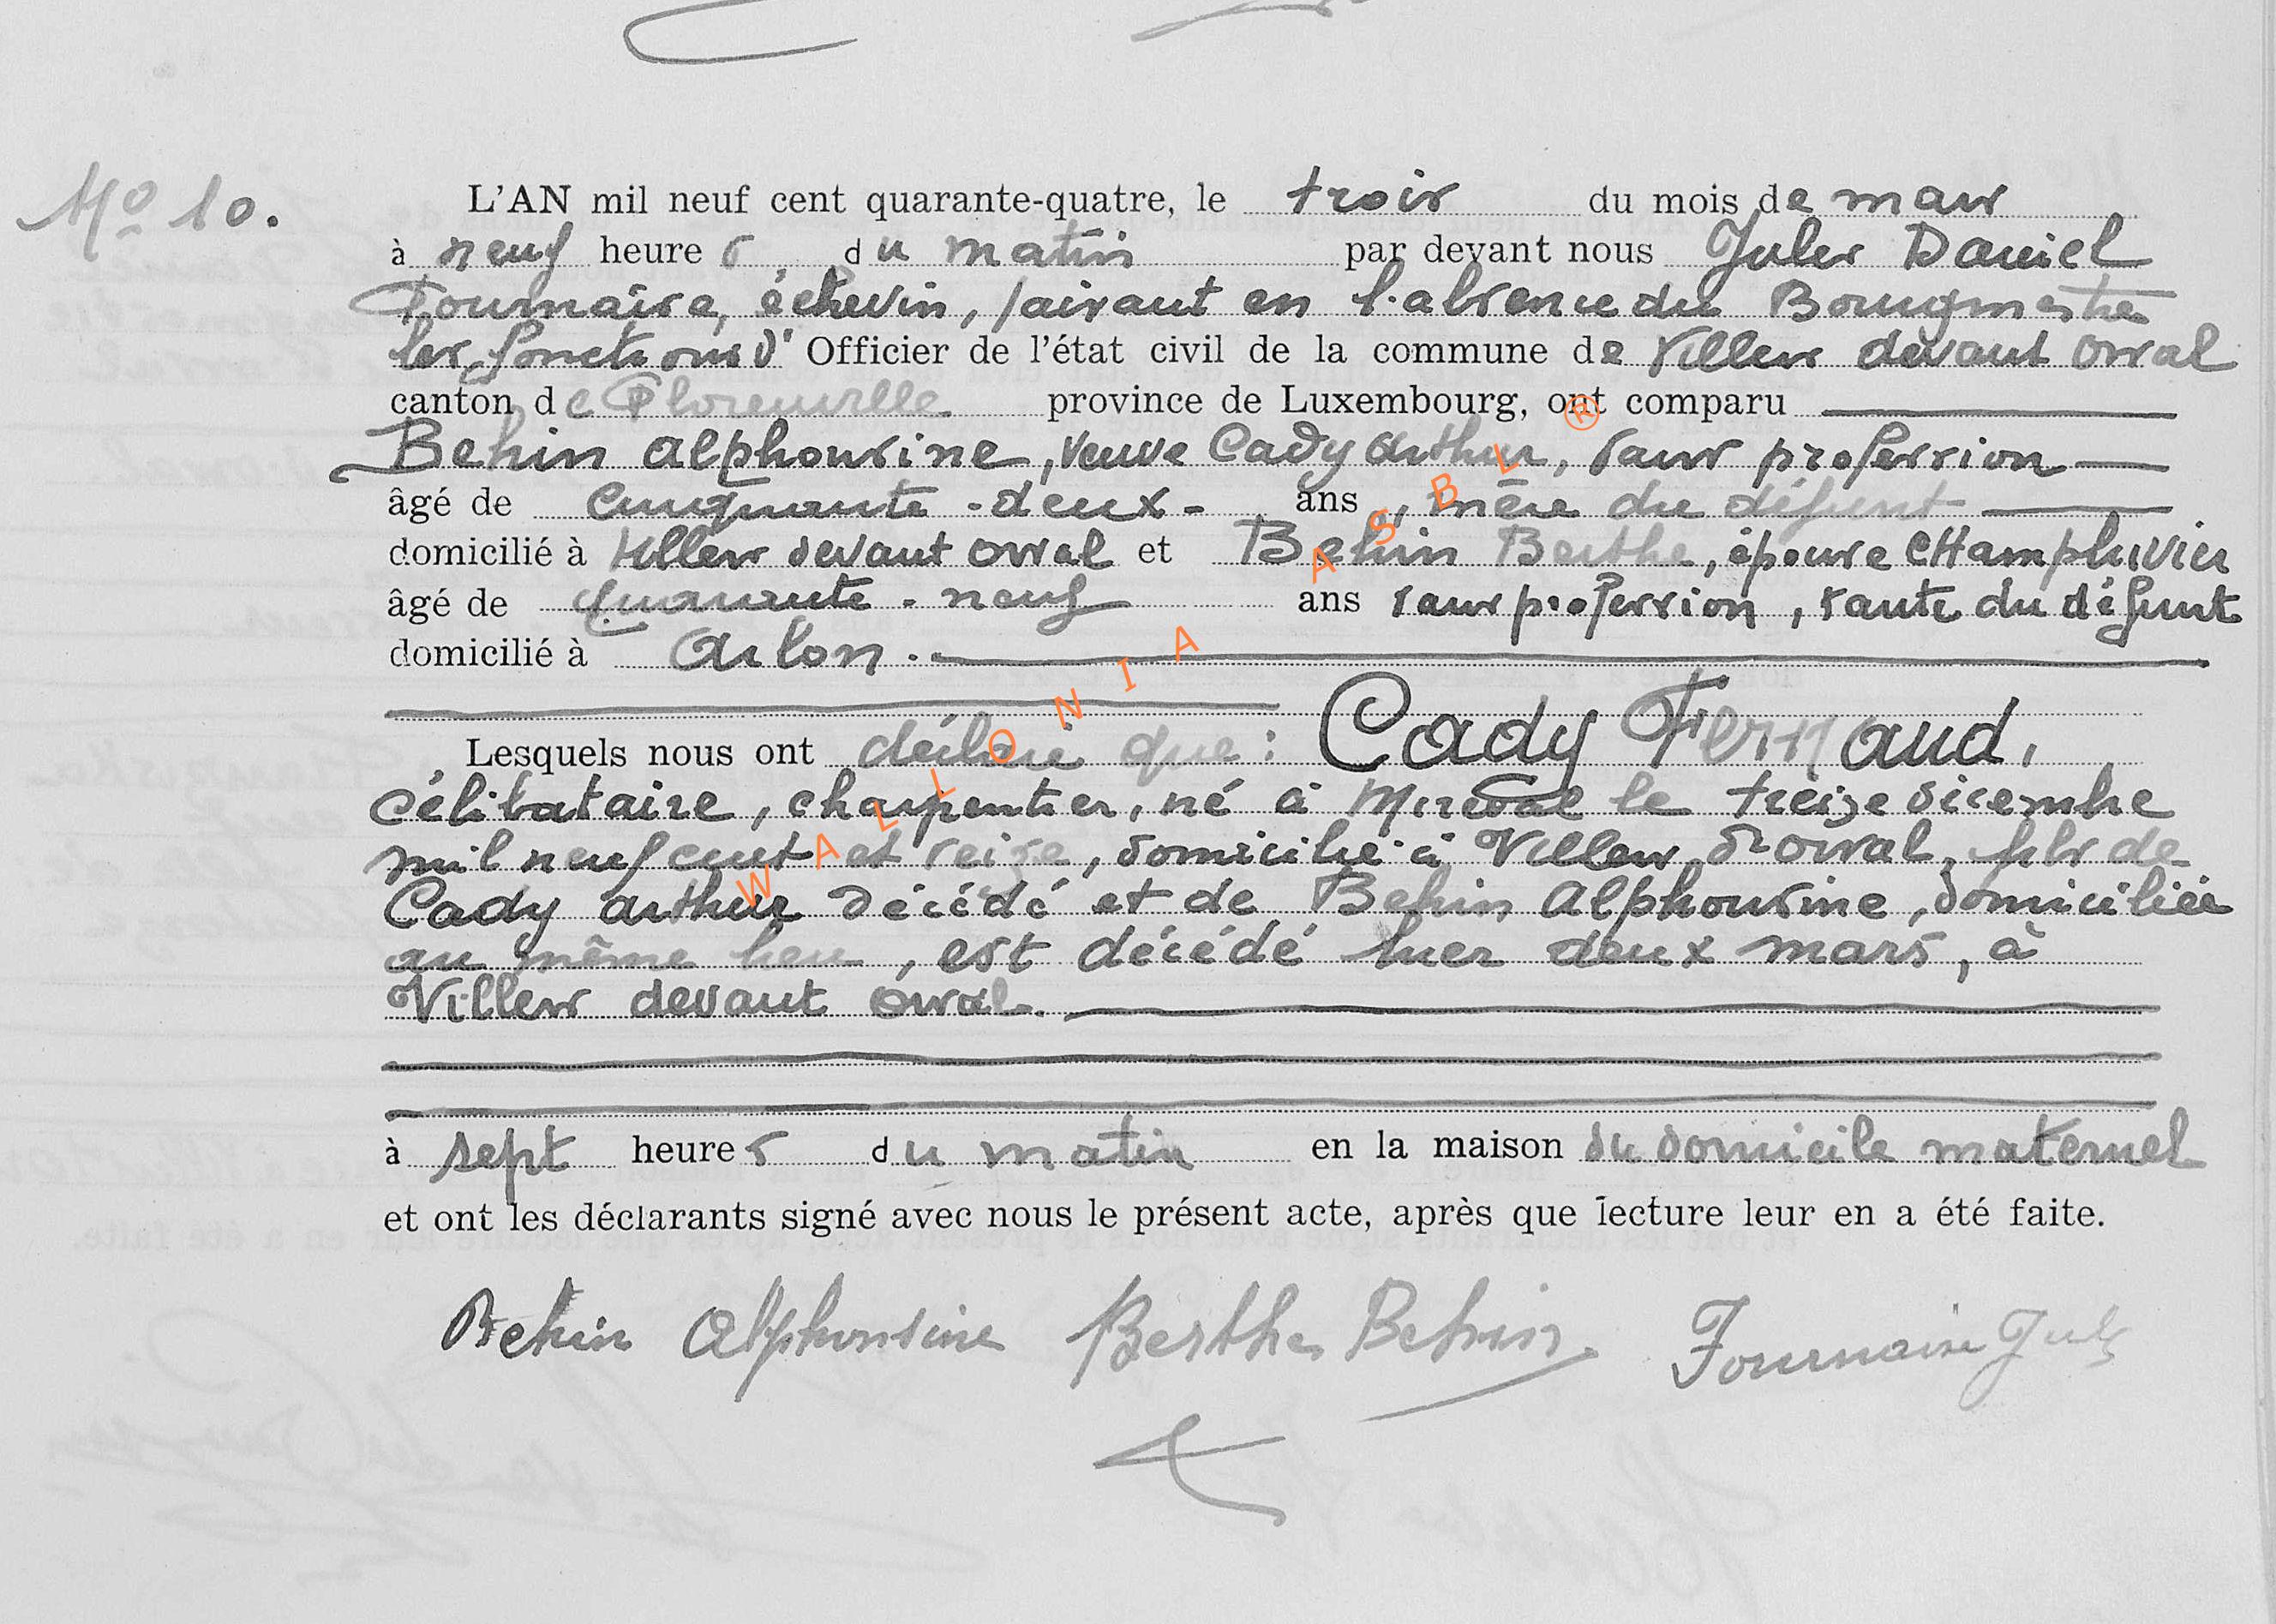 No 10.
L'AN mil neuf cent quarante-quatre, le trois du mois de mars
à neuf heures du matin par devant nous Jules Daniel
Fournaise, échevin, faisant en l'absence du Bourgmestre
les fonctions d' Officier de l'état civil de la commune de Villers devant Orval
canton de Florenville province de Luxembourg, ont comparu
Behin Alphonsine, veuve Cady Arthur, sans profession
âgé de cinquante-deux ans, mère du défunt
domicilié à Villers devant Orval et Behin Berthe, épouse CHampluvier
âgé de quarante-neuf ans sans profession, tante du défunt
domicilié à Arlon.
Lesquels nous ont déclaré que : Cady Fernand,
célibataire, charpentier, né à le treize décembre
mil neuf cent et seize, domicilié à Villers dt Orval, fils de
Cady Arthur décédé et de Behin Alphonsine, domiciliée
au même lieu, est décédé hier deux mars, à
Villers devant Orval.
à sept heures du matin en la maison du domicile maternel
et ont les déclarants signé avec nous le présent acte, après que lecture leur en a été faite.
Behin Alphonsine Berthe Behin Fournaise Jules
WALLONIA ASBL ®